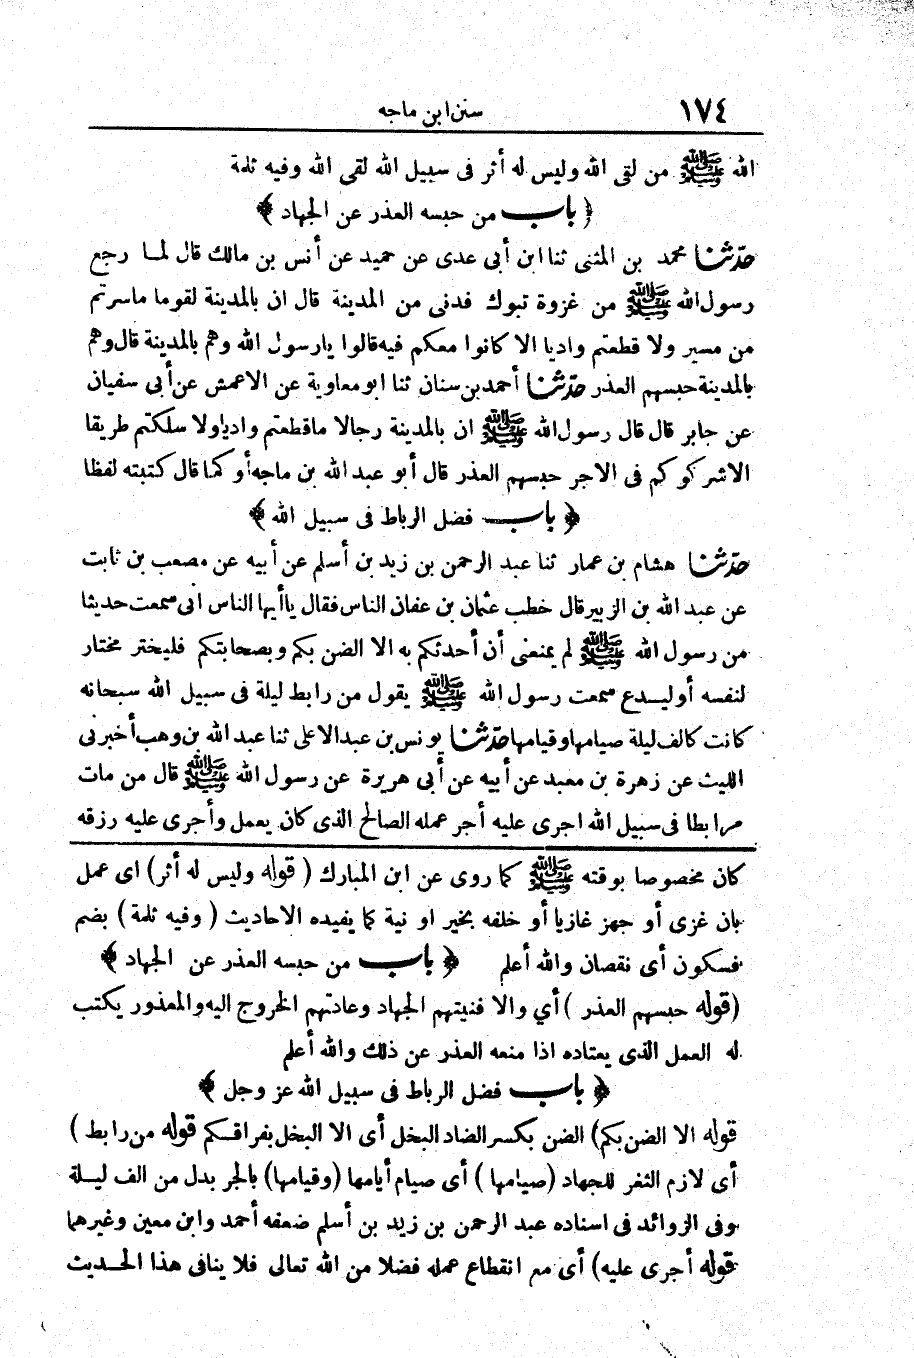 ١٧٤ سنن ابن ماجه
الله ﷺ من لقى الله وليس له أثر فى سبيل الله لقى الله وفيه ثلمة
﴿ باب من حبسه العذر عن الجهاد ﴾
حدّثنا محمد بن المثنى ثنا ابن أبى عدى عن حميد عن أنس بن مالك قال لما رجع
رسول الله ﷺ من غزوة تبوك فدنى من المدينة قال ان بالمدينة لقوما ماسرتم
من مسير ولا قطعتم واديا الا كانوا معكم فيه قالوا يارسول الله وهم بالمدينة قال وهم
بالمدينة حبسهم العذر حدّثنا أحمد بن سنان ثنا ابو معاوية عن الاعمش عن أبى سفيان
عن جابر قال قال رسول الله ﷺ ان بالمدينة رجالا ماقطعتم واديا ولا سلكتم طريقا
الا شركوكم فى الاجر حبسهم العذر قال أبو عبد الله بن ماجه أو كما قال كتبته لفظا
﴿ باب فضل الرباط فى سبيل الله ﴾
حدّثنا هشام بن عمار ثنا عبد الرحمن بن زيد بن أسلم عن أبيه عن مصعب بن ثابت
عن عبد الله بن الزبير قال خطب عثمان بن عفان الناس فقال ياأيها الناس انى سمعت حديثا
من رسول الله ﷺ لم يمنعنى أن أحدثكم به الا الضن بكم وبصحابتكم فليختر مختار
لنفسه أو ليدع سمعت رسول الله ﷺ يقول من رابط ليلة فى سبيل الله سبحانه
كانت كالف ليلة صيامها وقيامها حدّثنا يونس بن عبد الاعلى ثنا عبد الله بن وهب أخبرنى
الليث عن زهرة بن معبد عن أبيه عن أبى هريرة عن رسول الله ﷺ قال من مات
مرابطا فى سبيل الله اجرى عليه أجر عمله الصالح الذى كان يعمل وأجرى عليه رزقه
كان مخصوصا بوقته ﷺ كما روى عن ابن المبارك ( قوله وليس له أثر) اى عمل
بان غزى أو جهز غازيا أو خلفه بخير او نية كما يفيده الاحاديث ( وفيه ثلمة ) بضم
فسكون أى نقصان والله أعلم ﴿ باب من حبسه العذر عن الجهاد ﴾
(قوله حبسهم العذر ) أي والا فنيتهم الجهاد وعادتهم الخروج اليه والمعذور يكتب
له العمل الذى يعتاده اذا منعه العذر عن ذلك والله أعلم
﴿ باب فضل الرباط فى سبيل الله عز وجل ﴾
قوله الا الضن بكم) الضن بكسر الضاد البخل أى الا البخل بفراقكم قوله من رابط )
أى لازم الثغر للجهاد (صيامها ) أى صيام أيامها (وقيامها) بالجر بدل من الف ليلة
وفى الزوائد فى اسناده عبد الرحمن بن زيد بن أسلم ضعفه أحمد وابن معين وغيرهما
قوله أجرى عليه) أى مع انقطاع عمله فضلا من الله تعالى فلا ينافى هذا الحديث